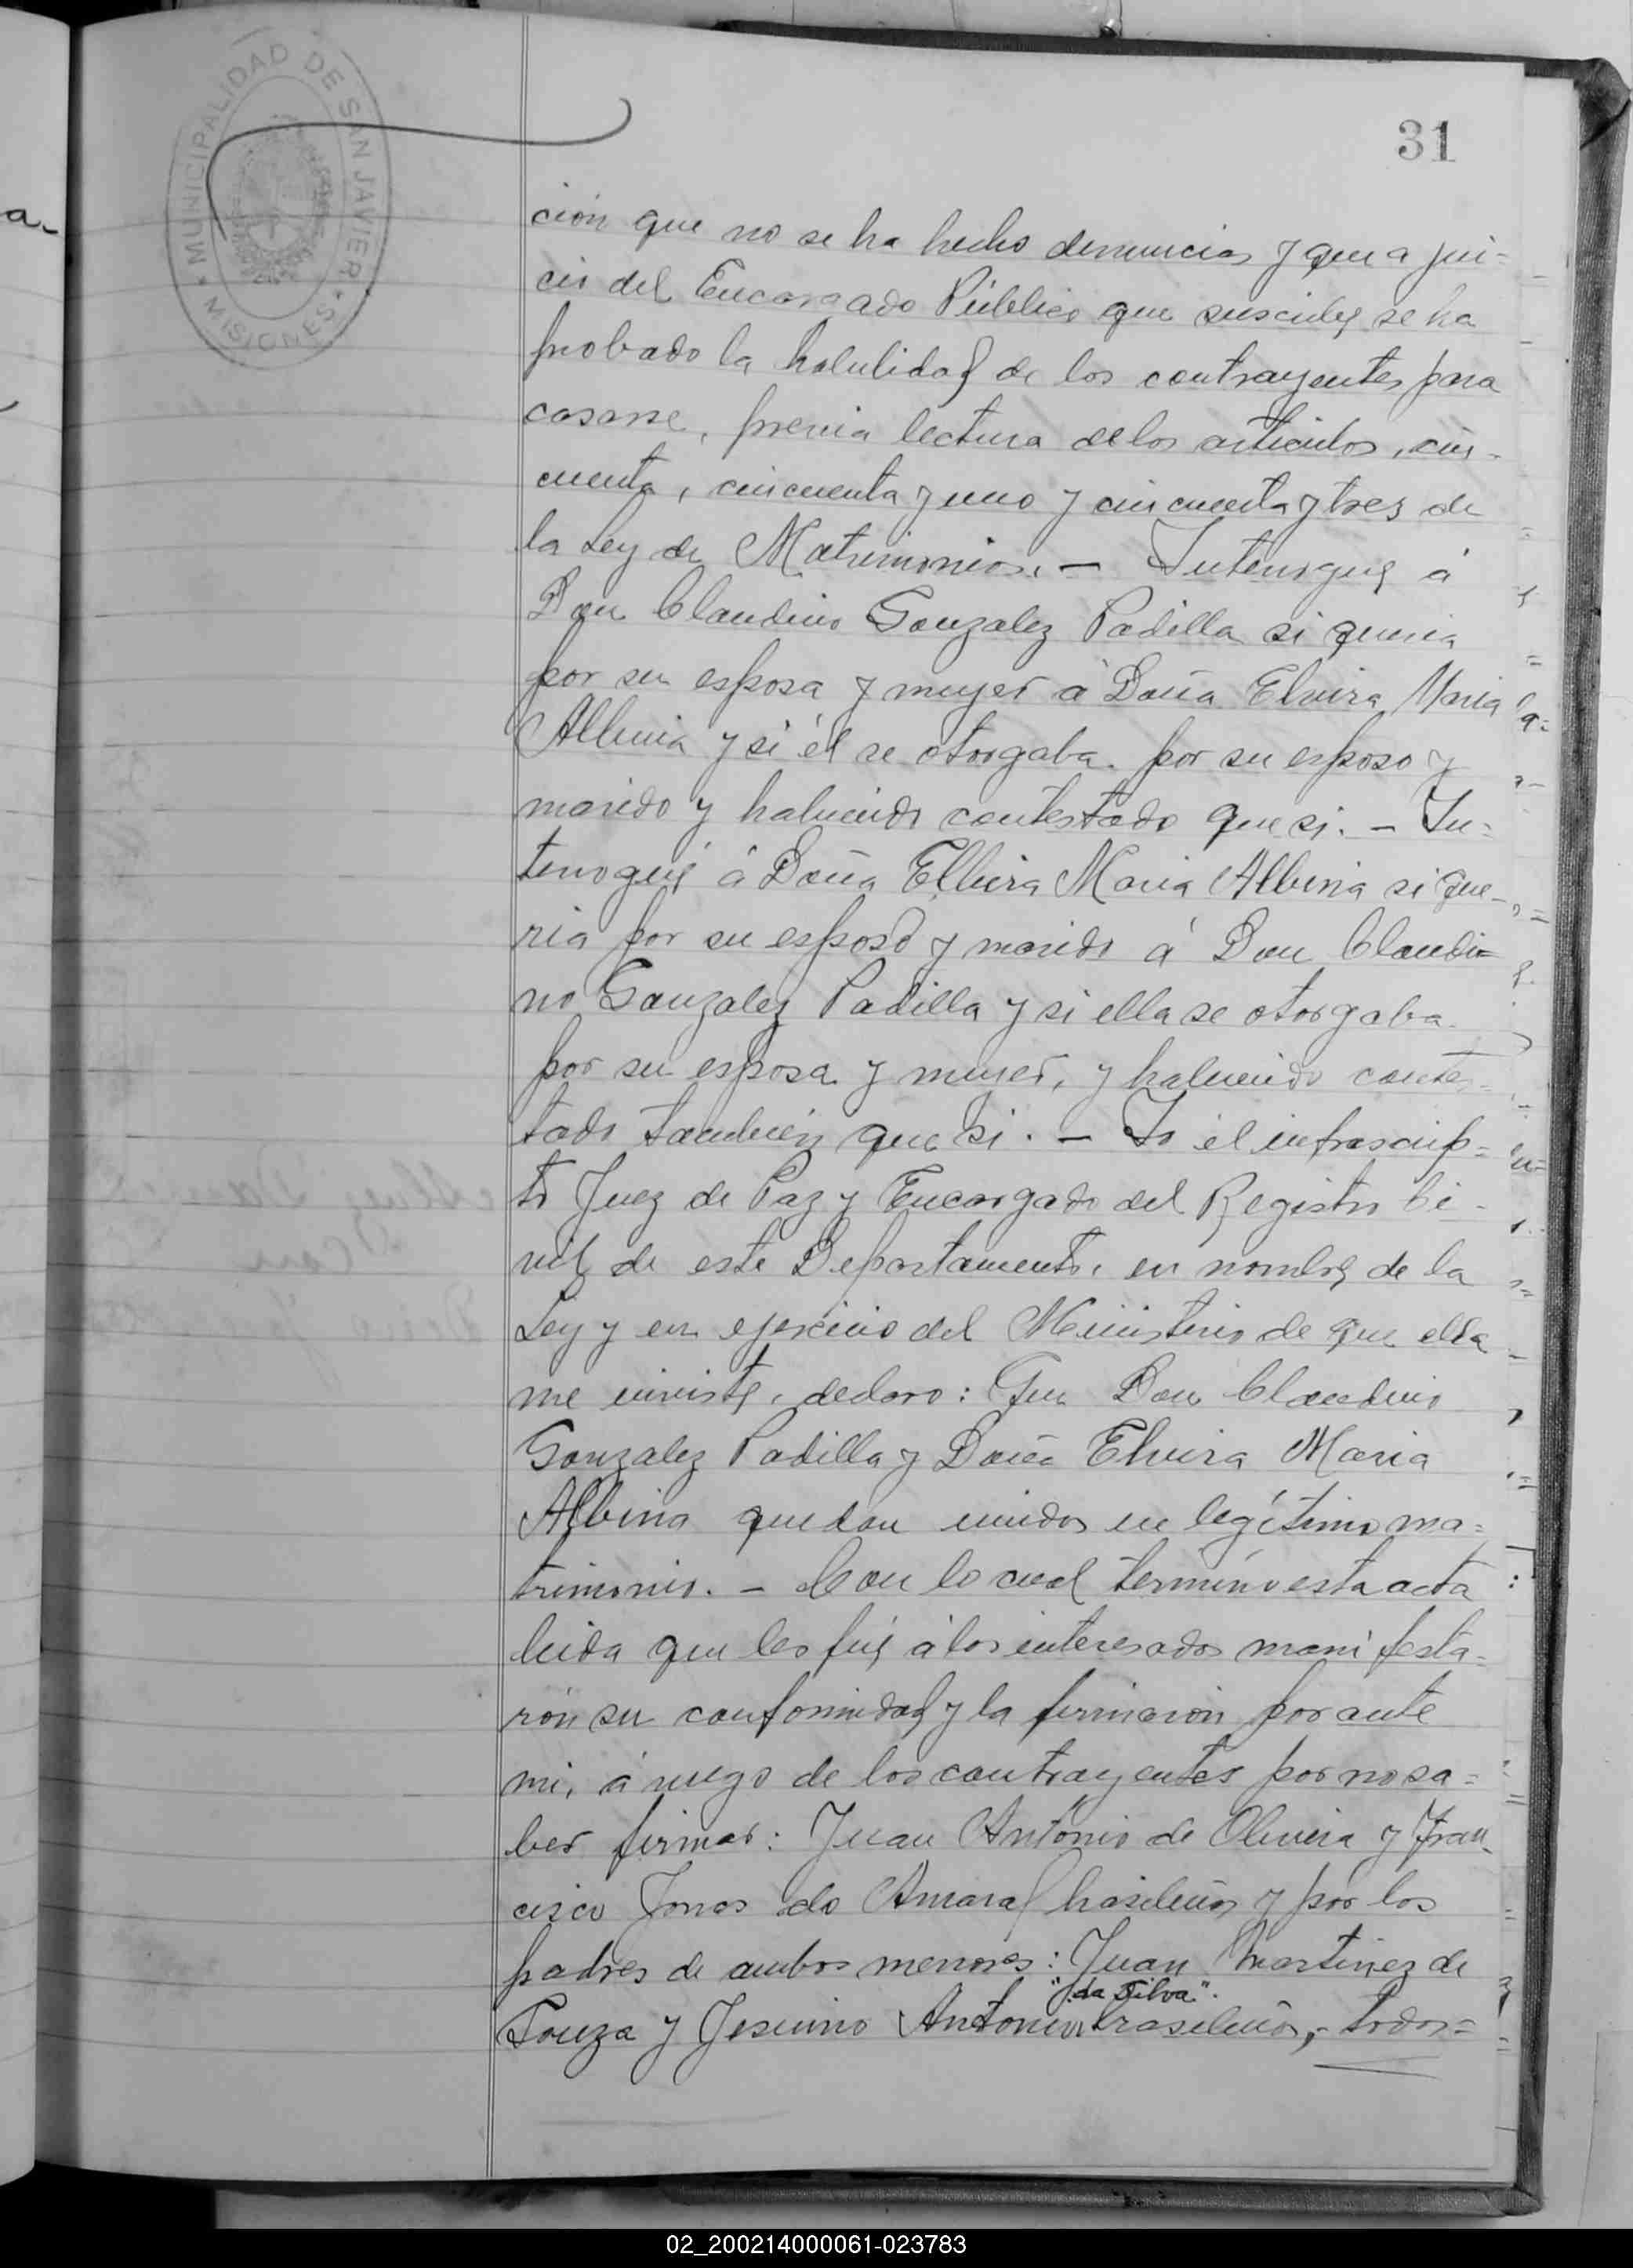 MUNICIPALIDAD DE SAN JAVIER
* MISIONES *
31
ción que no se ha hecho denuncias y que a jui=
cio del Encargado Público que suscribe se ha
probado la habilidad de los contrayentes para
casarse, previa lectura de los articulos, cin-
cuenta, cincuenta y uno y cincuenta y tres de
la Ley de Matrimonios. — Interrogué á
Don Claudino Gonzalez Padilla si queria
por su esposa y mujer á Doña Elvira Maria
Albina y si él se otorgaba por su esposo y
marido y habiendo contestado que si. — In=
terrogué á Doña Elbira Maria Albina si que-
ria por su esposo y marido á Don Claudi=
no Gonzalez Padilla y si ella se otorgaba
por su esposa y mujer, y habiendo contes=
tado tambien que si. — Yo el infrascrip=
to Juez de Paz y Encargado del Registro Ci-
vil de este Departamento, en nombre de la
Ley y en ejercicio del Ministerio de que ella
me inviste, declaro: Que Don Claudino
Gonzalez Padilla y Doña Elvira Maria
Albina quedan unidos en legítimo ma=
trimonio. — Con lo cual terminó esta acta
leida que les fué á los interesados manifesta=
rón su conformidad y la firmarón por ante
mi, á ruego de los contrayentes por no sa=
ber firmar: Juan Antonio de Olivera y Fran
cisco Jonas do Amaral brasileños y por los
padres de ambos menores: Juan Martinez de
"da Silva".
Souza y Jesuino Antonio brasileños, - todos=
02_200214000061-023783